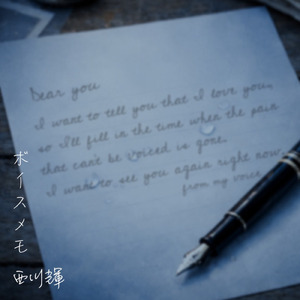 Dear you
I want to tell you that I love you,
so I'll fill in the time when the pain
that can't be voiced is gone.
I want to see you again right now.
from my voice
ボイスメモ
西川輝